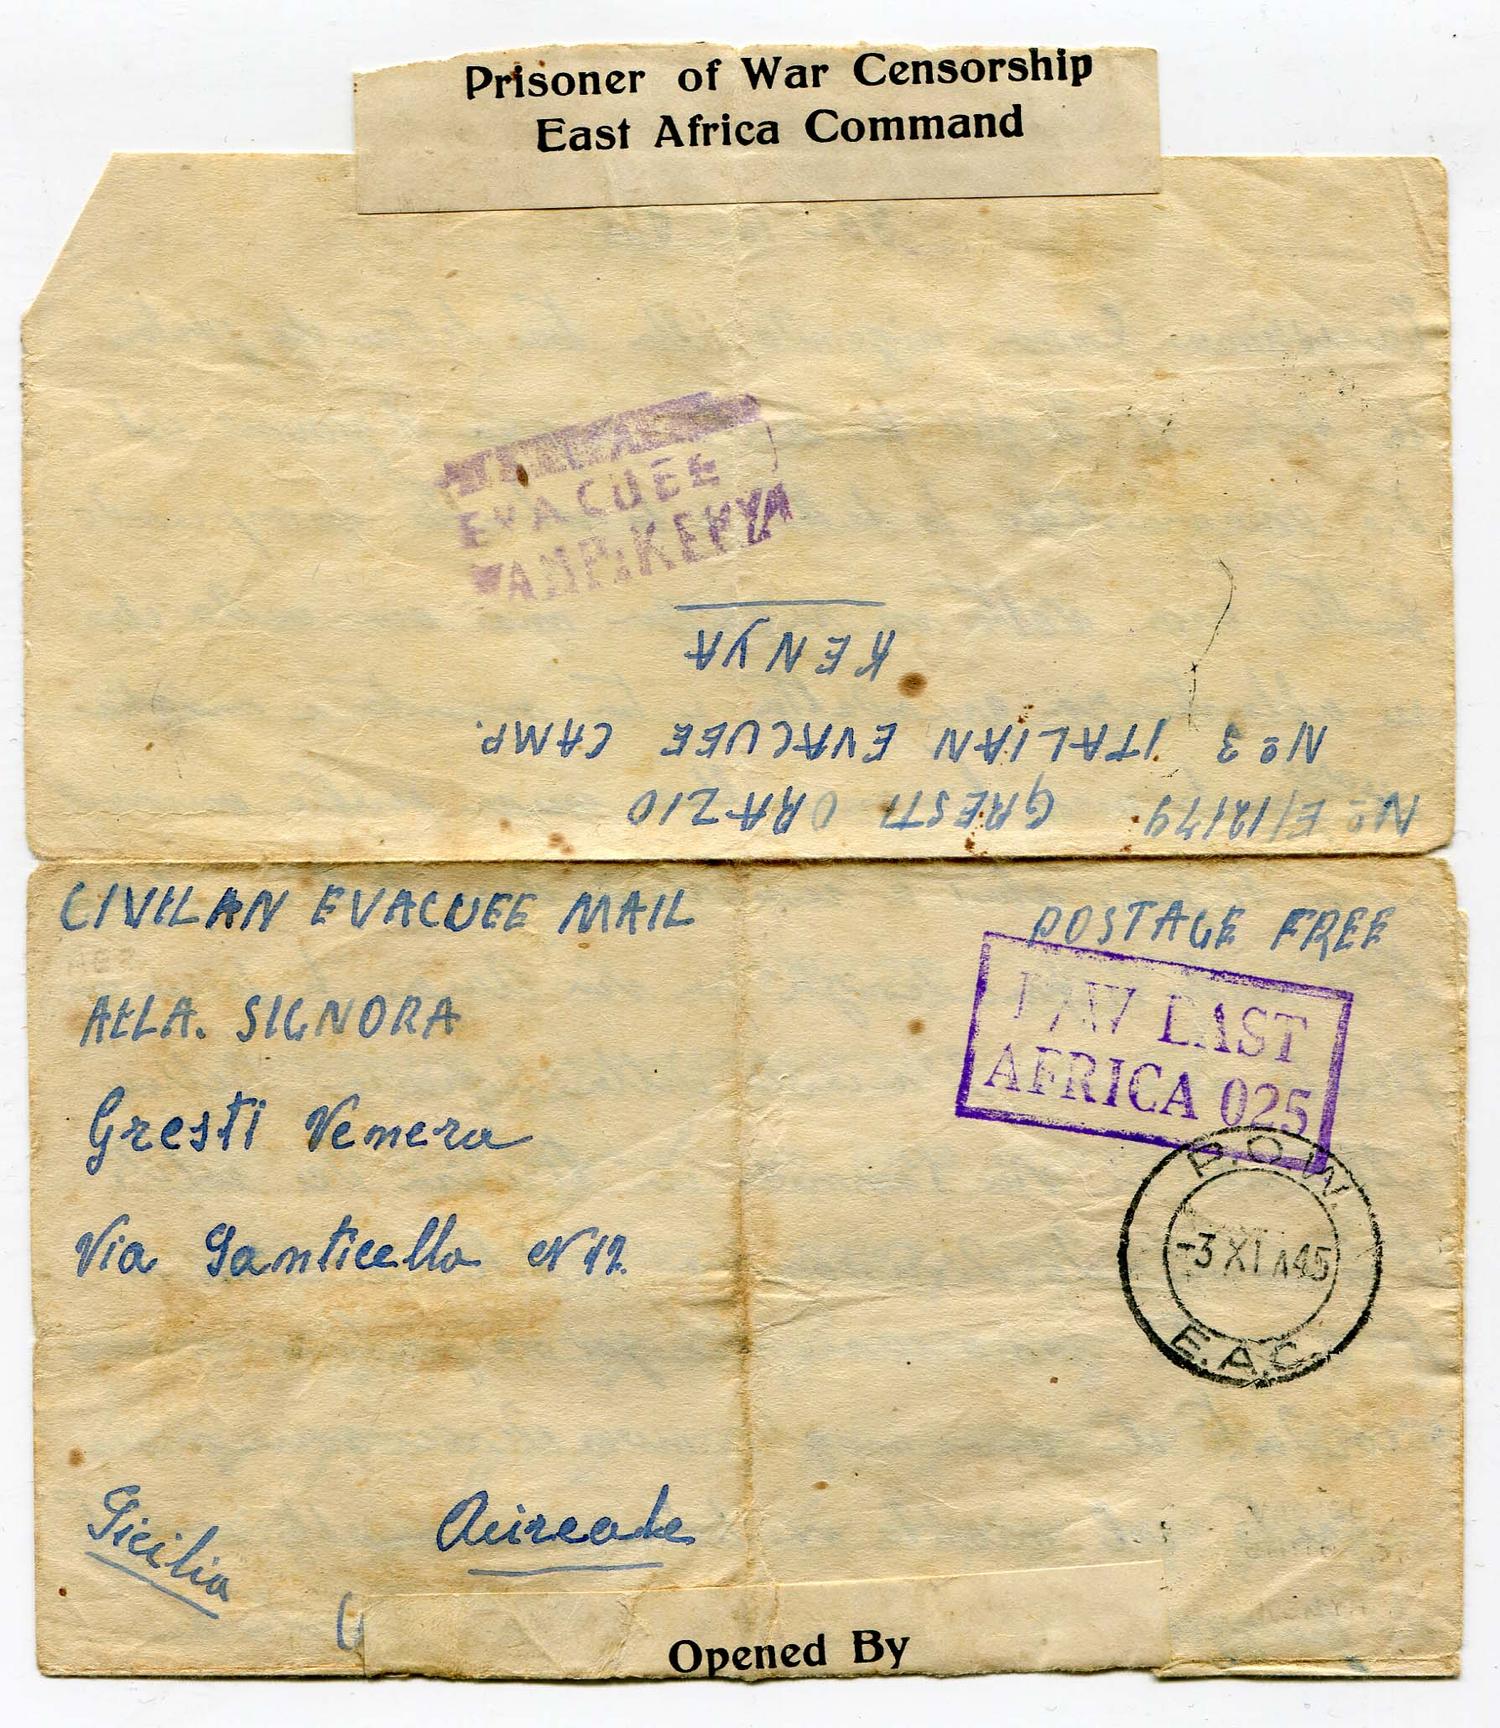 Prisoner of War Censorship
East Africa Command
EVACUEE
CAMP. KENYA
KENYA
No 3 ITALIAN EVACUEE CAMP.
No E/12179 GRESTI ORAZIO
CIVILAN EVACUEE MAIL
POSTAGE FREE
P/W EAST
AFRICA 025
ALLA. SIGNORA
Gresti Venera
P.O.W.
-3 XI A45
E.A.C.
Via Santicello N 12
Acireale
Sicilia
Opened By